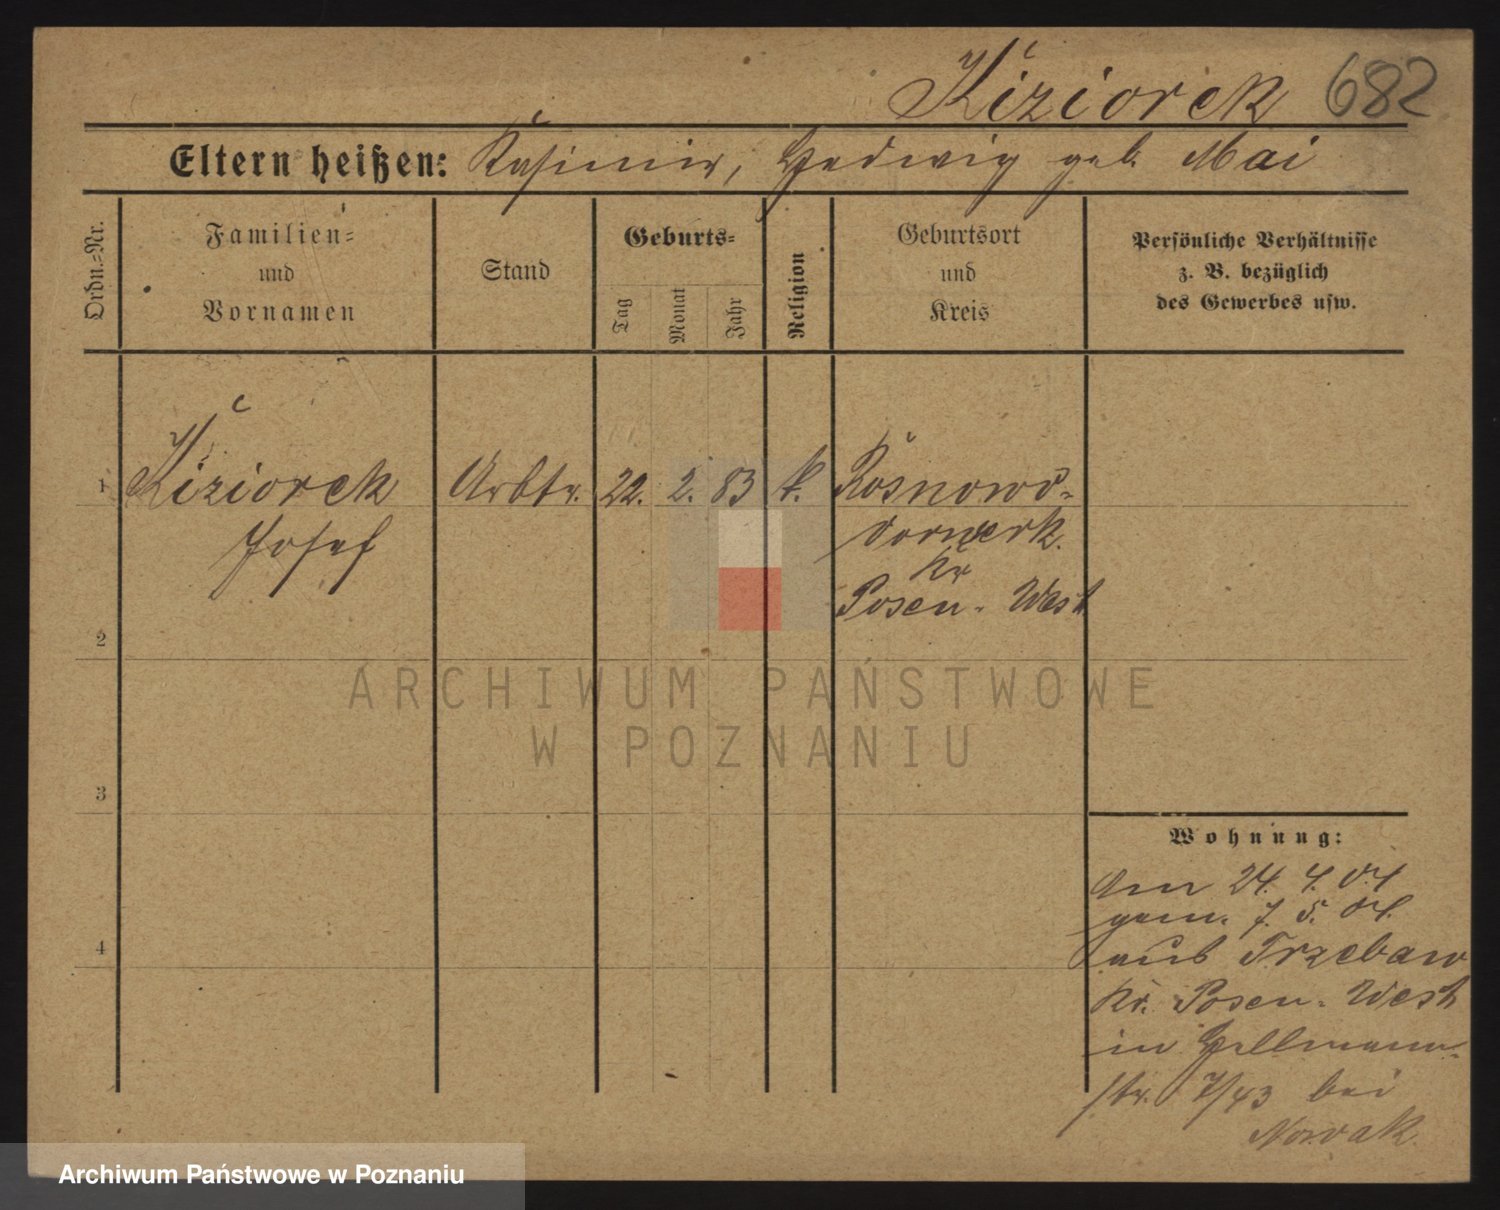 Kiziorek 682
Eltern heißen: Kasimir, Hedwig geb. Mai
Ordn.=Nr.
Familien=
und
Vornamen
Stand
Geburts=
Tag
Monat
Jahr
Religion
Geburtsort
und
Kreis
Persönliche Verhältnisse
z. B. bezüglich
des Gewerbes usw.
1 Kiziorek Arbtr. 22. 2. 83 k. Rosnowo-
Josef vorwerk.
Kr
Posen-West
2
ARCHIWUM PAŃSTWOWE
W POZNANIU
3
Wohnung:
24. 4. 04
gem. 7. 5. 04.
4 aus Trzebaw
Kr. Posen-West
in Hellmann-
str. 7/43 bei
Nowak.
Archiwum Państwowe w Poznaniu